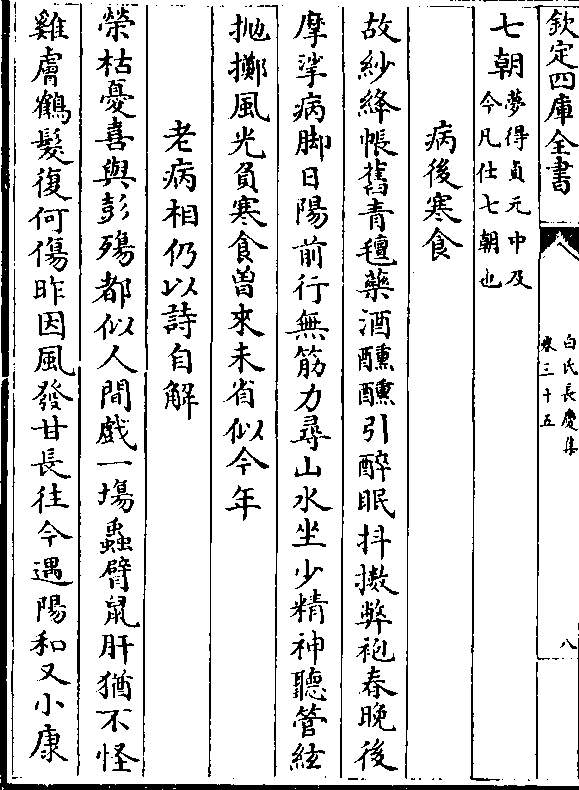 欽定四庫全書
白氏長慶集
卷三十五
八
七朝夢得貞元中及
今凡仕七朝也
病後寒食
故紗絳帳舊青氊藥酒醺醺引醉眠抖擻弊袍春晚後
摩挲病脚日陽前行無筋力尋山水坐少精神聽管絃
抛擲風光負寒食曽來未省似今年
老病相仍以詩自解
榮枯憂喜與彭殤都似人間戲一塲蟲臂鼠肝猶不怪
雞膚鶴髮復何傷昨因風發甘長往今遇陽和又小康